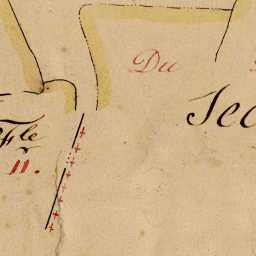 Du
Sec
Fle
11.